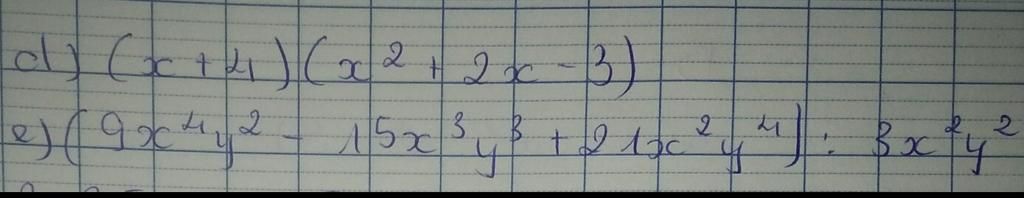 d) (x+4)(x² + 2x - 3)
e) (9x⁴y² - 15x³y³ + 21x²y⁴) : 3x²y²